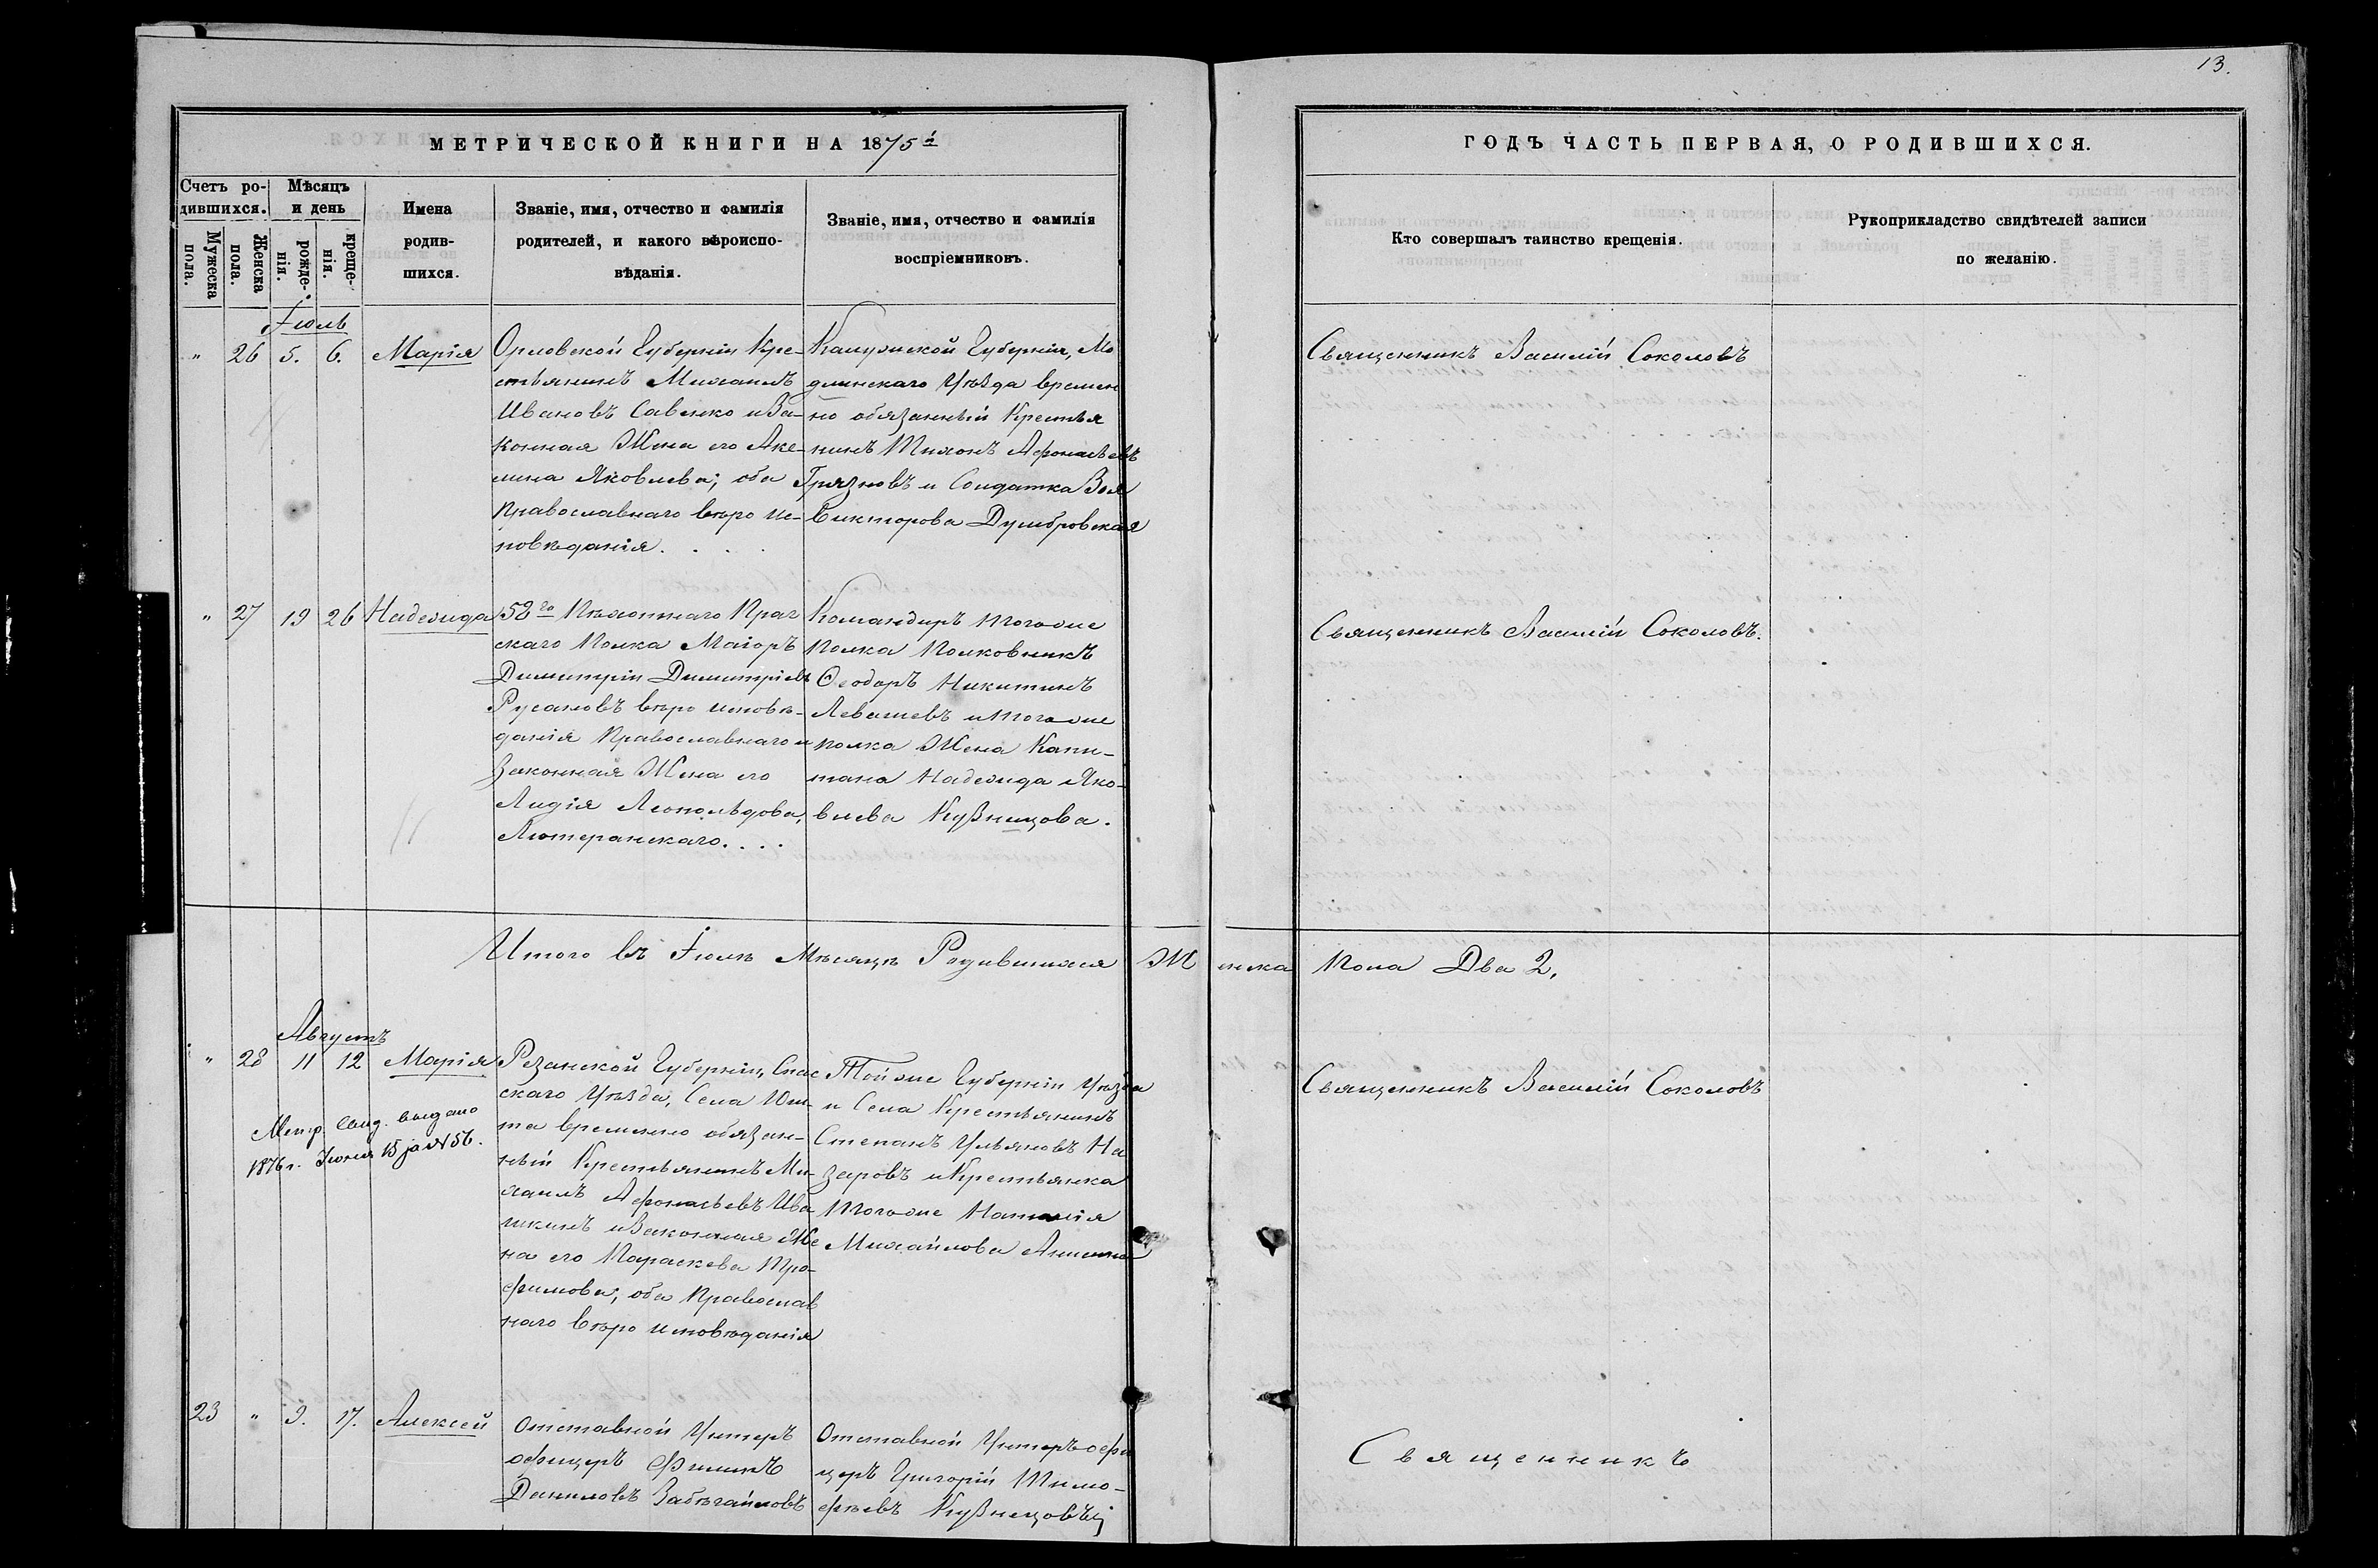 13.
МЕТРИЧЕСКОЙ КНИГИ НА 1875й
ГОДЪ ЧАСТЬ ПЕРВАЯ, О РОДИВШИХСЯ.
Счетъ ро-
дившихся.
Мѣсяцъ
и день
Мужеска
пола.
Женска
пола.
рожде-
нія.
креще-
нія.
Имена
родив-
шихся.
Званіе, имя, отчество и фамилія
родителей, и какого вѣроиспо-
вѣданія.
Званіе, имя, отчество и фамилія
воспріемниковъ.
Кто совершалъ таинство крещенія.
Рукоприкладство свидѣтелей записи
по желанію.
Іюль
" 26 5. 6. Марія
Орловской Губерніи Кре-
стьянинъ Михаилъ
Ивановъ Савенко и За-
конная Жена его Аке-
лина Яковлева; оба
Православнаго вѣро ис-
повѣданія. . . .
Калужской Губерніи, Мо
дынскаго Уѣзда времен
но обязанный Крестья
нинъ Тихонъ Афонасьевъ
Грязновъ и Солдатка Зоя
Викторова Думбровская
Священникъ Василій Соколовъ
" 27 19 26 Надежда
58го Пѣхотнаго Праг
скаго Полка Маіоръ
Димитріи Димитріевъ
Русановъ вѣро исповѣ-
данія Православнаго и
Законная Жена его
Лидія Леопольдова,
Лютеранскаго. . . .
Командиръ тогоже
полка Полковникъ
Ѳеодоръ Никитинъ
Левашевъ и тогоже
полка Жена Капи-
тана Надежда Яко-
влева Кузнецова.
Священникъ Василій Соколовъ.
Итого въ Іюлѣ Мѣсяцѣ Родившихся Женска Пола Два 2,
Августъ
" 28 11 12 Марія
Метр. Свид. выдано
1876 г. Іюня 15 за № 56.
Резанской Губерніи, Спас
скаго Уѣзда, Села
та временно обязан-
ный Крестьянинъ Ми-
хаилъ Афонасьевъ Ива
шкинъ и Законная Же
на его Параскева Тро-
фимова, оба Православ
наго вѣро исповѣданія
Тойже Губерніи Уѣзда
и Села Крестьянинъ
Степанъ Ульяновъ На
заровъ и Крестьянка
Тогоже Наталія
Михайлова
Священникъ Василій Соколовъ
23 " 9. 17. Алексей
Отставной Унтеръ
офицеръ Филипъ
Даниловъ Забѣгайловъ
Отставной Унтеръ офи
церъ Григорій Тимо-
фѣевъ Кузнецовъ
Священникъ